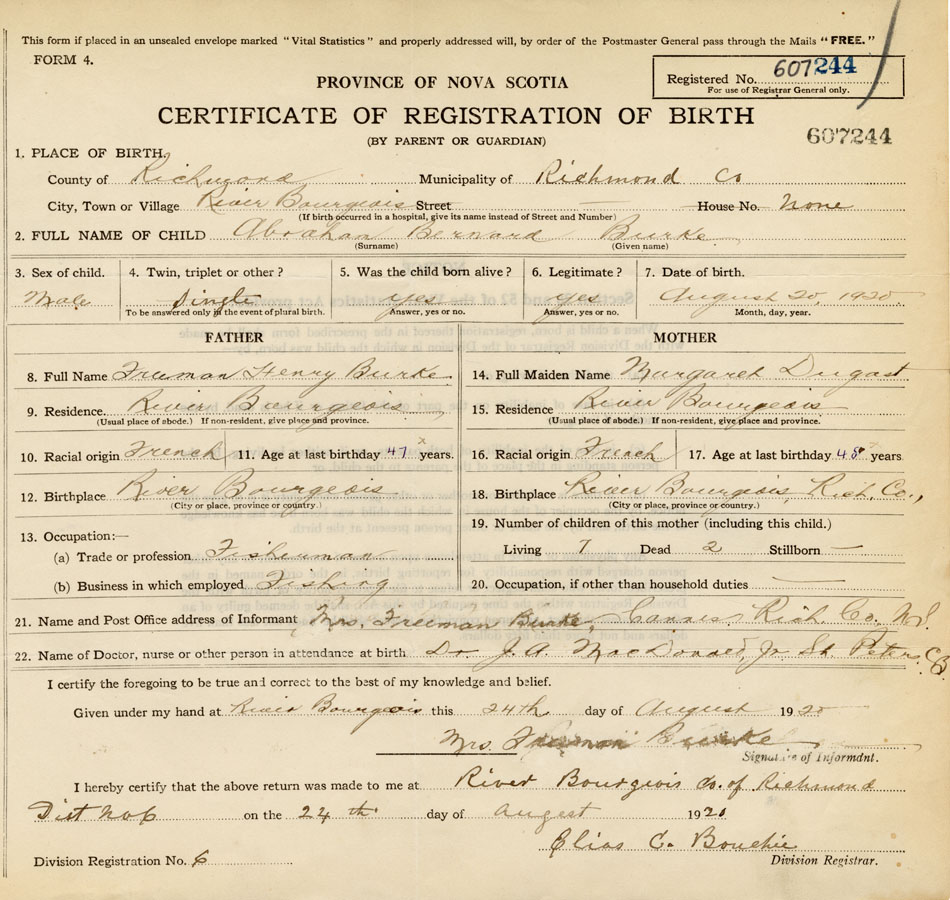 This form if placed in an unsealed envelope marked "Vital Statistics" and properly addressed will, by order of the Postmaster General pass through the Mails "FREE."
FORM 4.
PROVINCE OF NOVA SCOTIA
Registered No. 607244
For use of Registrar General only.
CERTIFICATE OF REGISTRATION OF BIRTH
607244
(BY PARENT OR GUARDIAN)
1. PLACE OF BIRTH.
County of Richmond Municipality of Richmond Co
City, Town or Village River Bourgeois Street — House No. None
(If birth occurred in a hospital, give its name instead of Street and Number)
2. FULL NAME OF CHILD Abrahan Bernard Burke
(Surname) (Given name)
3. Sex of child. 4. Twin, triplet or other? 5. Was the child born alive? 6. Legitimate? 7. Date of birth.
Male Single yes yes August 20, 1920.
To be answered only in the event of plural birth. Answer, yes or no. Answer, yes or no. Month, day, year.
FATHER MOTHER
8. Full Name Freeman Henry Burke 14. Full Maiden Name Margaret Dugast
9. Residence. River Bourgeois 15. Residence River Bourgeois
(Usual place of abode.) If non-resident, give place and province. (Usual place of abode.) If non-resident, give place and province.
10. Racial origin French 11. Age at last birthday 47 years. 16. Racial origin French 17. Age at last birthday years
12. Birthplace River Bourgeois 18. Birthplace River Bourgeois, Rich. Co.,
(City or place, province or country.) (City or place, province or country.)
19. Number of children of this mother (including this child.)
13. Occupation:—
(a) Trade or profession Fisherman Living 7 Dead 2 Stillborn —
(b) Business in which employed Fishing 20. Occupation, if other than household duties —
21. Name and Post Office address of Informant Mrs. Freeman Burke, Cannes Rich. Co. N.S.
22. Name of Doctor, nurse or other person in attendance at birth Dr. J. A. MacDonald, Jr St. Peters, C.B.
I certify the foregoing to be true and correct to the best of my knowledge and belief.
Given under my hand at River Bourgeois this 24th day of August 1920
Mrs. Freeman Burke
Signature of Informant.
I hereby certify that the above return was made to me at River Bourgeois Co. of Richmond
Dist No 6 on the 24th day of August 1920
Elias C. Bouchie
Division Registration No. 6 Division Registrar.